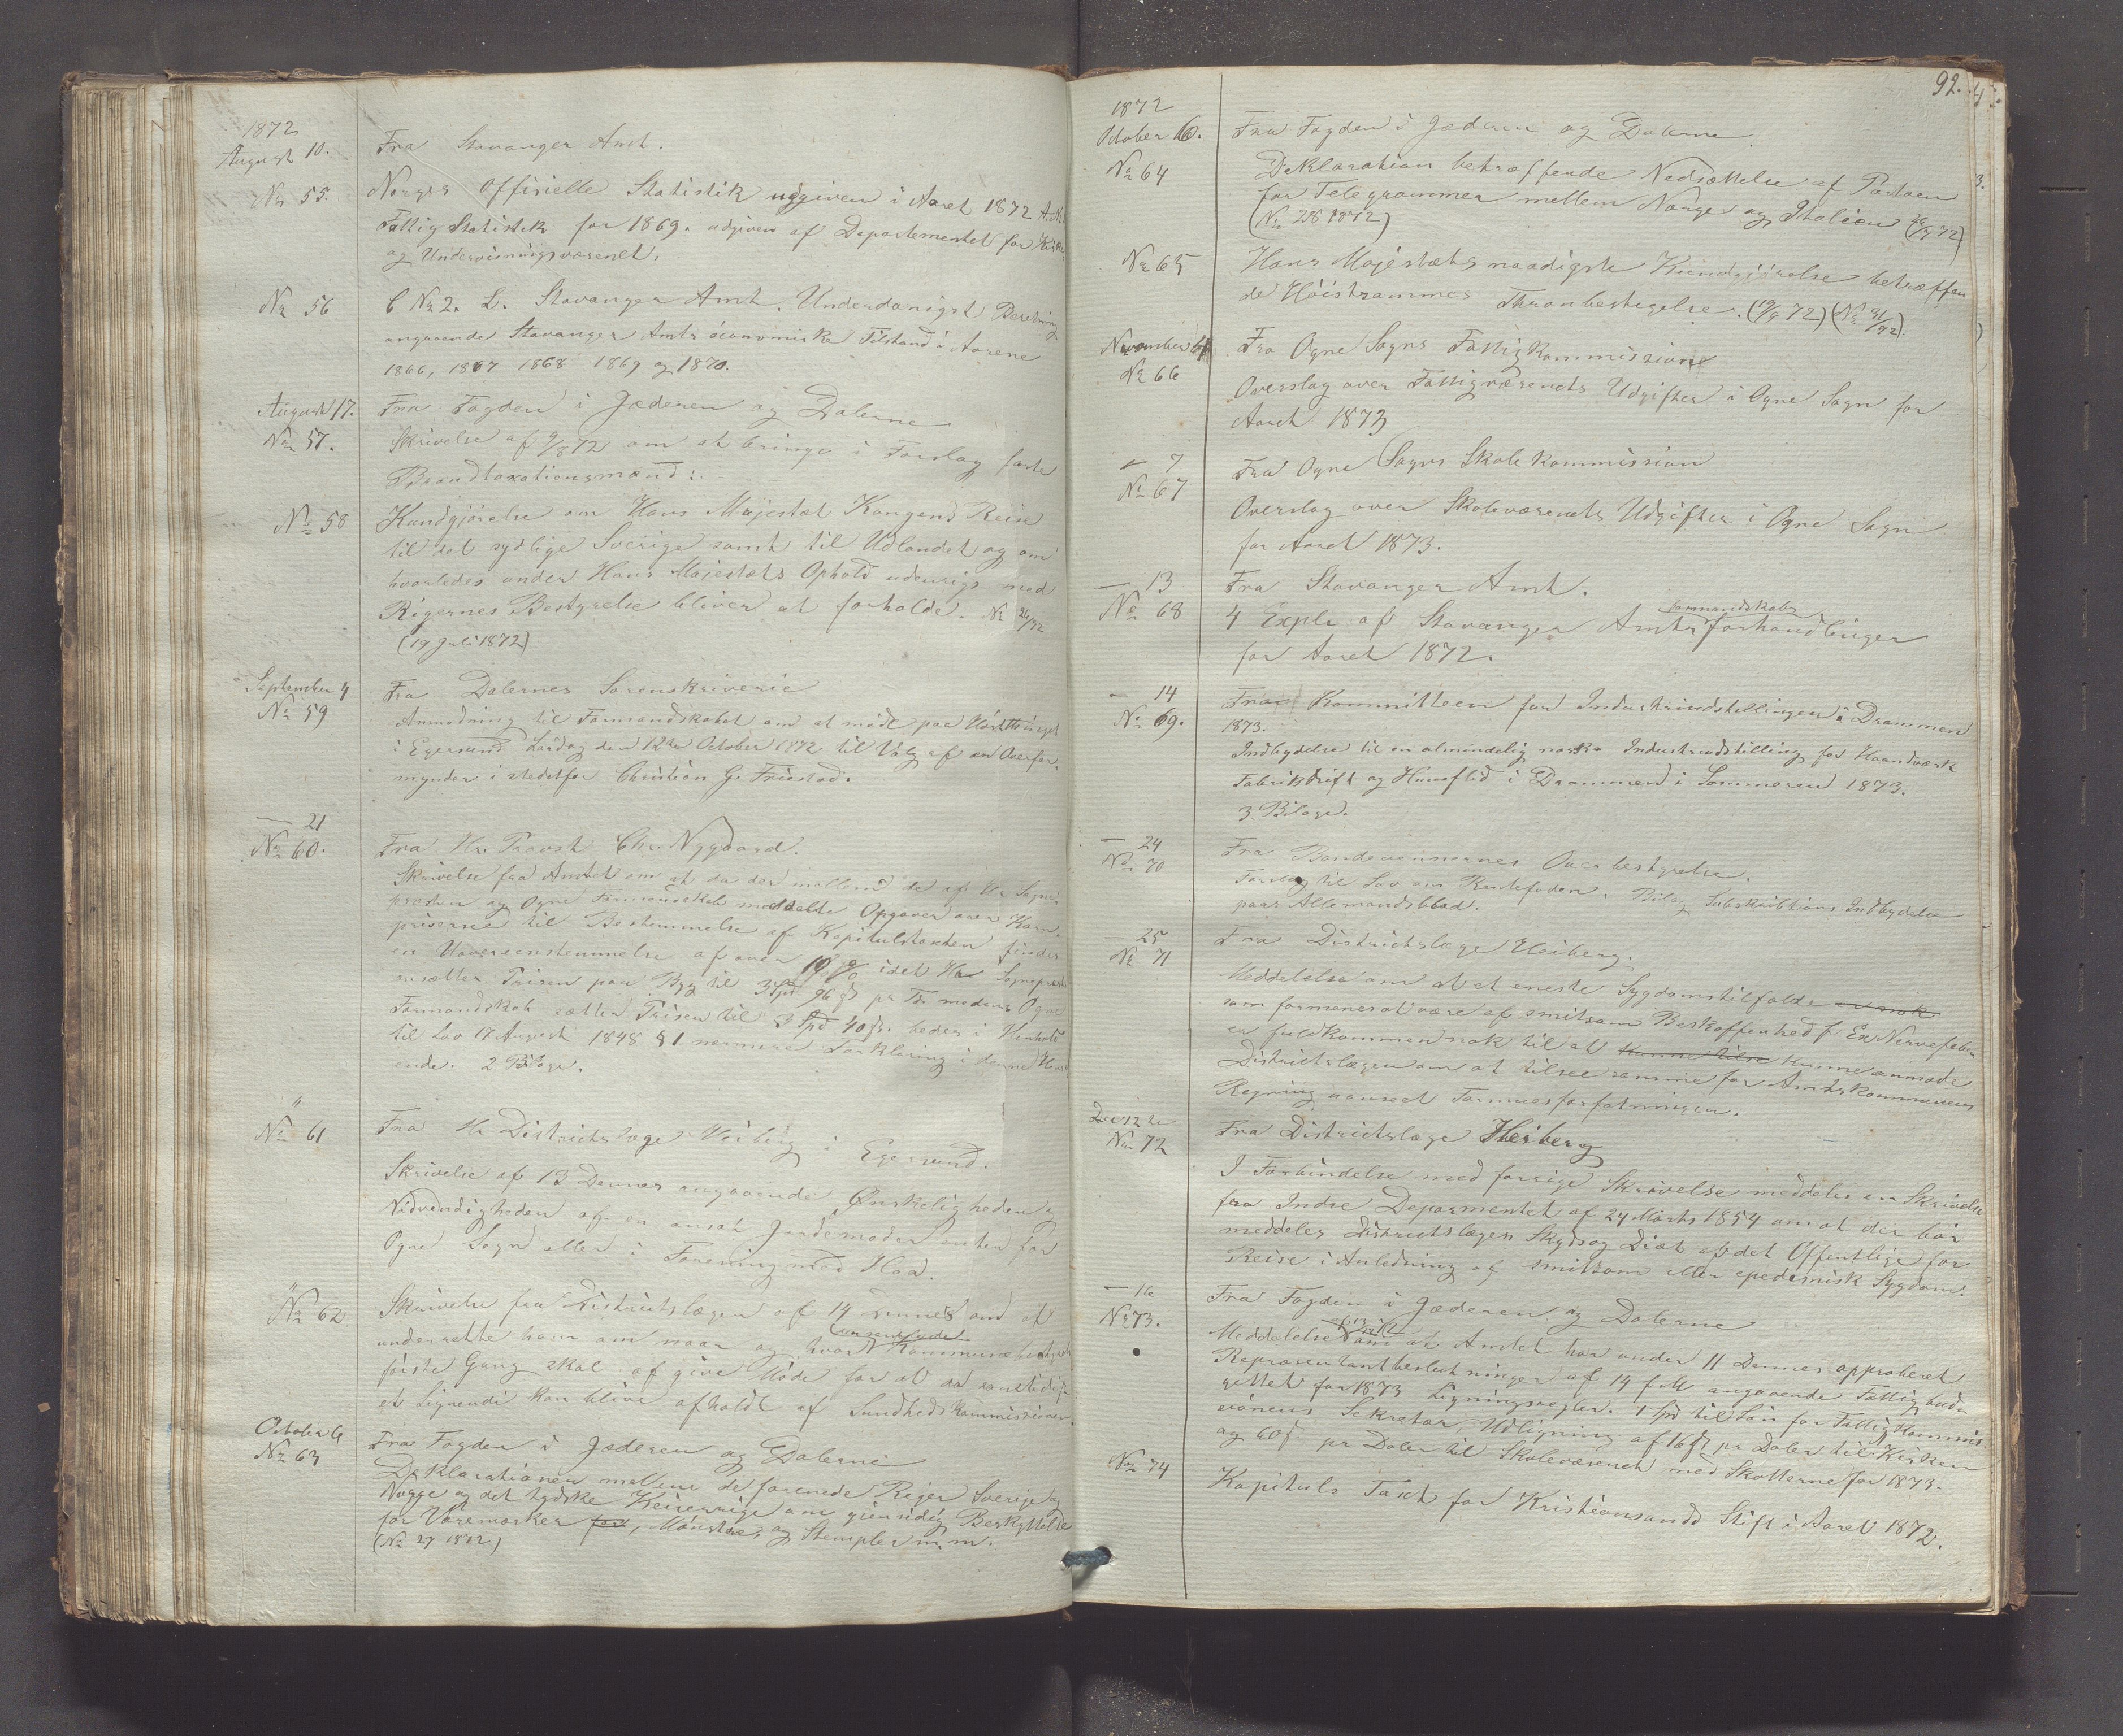 1872
August 10.
Fra Stavanger Amt.
No 55.
Norges Officielle Statistik udgiven i Aaret 1872
Fattig Statistik for 1869. udgiven af Departementet for Kirke
og Undervisningsvæsenet.
No 56
C No 2. L. Stavanger Amt. Underdanigst Beretning
angaaende Stavanger Amts öconomiske Tilstand i Aarene
1866, 1867 1868 1869 og 1870.
August 17.
Fra Fogden i Jæderen og Dalerne
No 57.
Skrivelse af 9/8 72 om at bringe i Forslag faste
Brandtaxationsmænd:.
No 58
Kundgjörelse om Hans Majestæt Kongens Reise
til det sydlige Sverige samt til Udlandet og om
hvorledes under Hans Majestæts Ophold udenrigs med
Rigernes Bestyrelse bliver at forholde. No 26/72
(19 Juli 1872)
September 4
Fra Dalernes Sorenskriverie
No 59
Anmodning til Formandskabet om at möde paa
i Egersund Lördag den 12te October 1872 til Valg af en Overfor-
mynder i stedetfor Christian G. Friestad.
— 21
No 60.
Fra Hr. Provst Chr. Nygaard.
Skrivelse fra Amtet om at da der mellem de af Hr Sogne
præsten og Ogne Formandskab meddelte Opgaver over Korn-
priserne til Bestemmelse af Kapitulstaxten findes
en Uoverensstemmelse af over 10 % idet Hr Sognepræst
ansætter Prisen paa Byg til 3 Spd 96 ß pr Td medens Ogne
Formandskab sætter Prisen til 3 Spd 40 ß. bedes i Henhold
til Lov 17 August 1848 § 1 nærmere Forklaring i denne Hens
ende. 2 Bilage.
"
No 61
Fra Hr Districtslæge Heiberg i Egersund.
Skrivelse af 13 Dennes angaaende Ønskeligheden og
Nödvendigheden af en ansat Jordemoder enten for
Ogne Sogn eller i Forening med Haa.
"
No 62
Skrivelse fra Districtslægen af 14 Dennes om at
underrette ham om naar og hvor Kommunebestyr
förste Gang skal afgive Möde for at da samtidigt
et Lignende kan blive afholdt af Sundhedskommissionen.
October 6
Fra Fogden i Jæderen og Dalerne
No 63
Deklarationen mellem de forenede Riger Sverige og
Norge og det tydske Keiserrige om gjensidig Beskyttelse
for Varemærker for, Mönstre og Stempler m. m.
(No 27 1872)
92.
1872
October 6.
Fra Fogden i Jæderen og Dalerne
No 64
Deklaration betræffende Nedsættelse af Portoen
for Telegrammer mellem Norge og Italien
(No 28 1872)
No 65
Hans Majestæts naadigste Kundgjörelse betræffen
de Höistsammes Thronbestigelse. (19/9 72) (No 31/72).
November
Fra Ogne Sogns Fattigkommission
No 66
Overslag over Fattigvæsenets Udgifter i Ogne Sogn for
Aaret 1873
— 7
Fra Ogne Sogns Skolekommission
No 67
Overslag over Skolevæsenets Udgifter i Ogne Sogn
for Aaret 1873.
— 13
Fra Stavanger Amt.
No 68
4 Expl. af Stavanger Amts formandskabs forhandlinger
for Aaret 1872.
— 14
Fra Kommitteen for Industriudstillingen i Drammen
No 69.
1873.
Indbydelse til en almindelig norske Industriudstilling for Haandværk
Fabrikdrift og Huusflid i Drammen i Sommeren 1873.
3 Bilage.
— 24
Fra Bondevennernes Overbestyrelse.
No 70
Forslag til Lov om Rentefoden. Bilag Subskribtions Indbydelse
paa Allemandsblad.
— 25
Fra Districtslæge Heiberg.
No 71
Meddelelse om at et eneste Sygdomstilfælde er nok
som formenes at være af smitsom Beskaffenhed f. Ex. Nervefeber
er fuldkommen nok til at kunne tilse kunne anmode
Districtslægen om at tilsee samme for Amtskommunens
Regning uanseet Formuesforfatningen.
Dec 12te
No 72
Fra Districtslæge Heiberg
I Forbindelse med forrige Skrivelse meddeles en Skrivelse
fra Indre Deparmentet af 24 Marts 1854 om at der bör
meddeles Districtslægen Skyds og Diæt af det Offentlige for
Reise i Anledning af smitsom eller epedemisk Sygdom.
— 16
Fra Fogden i Jæderen og Dalerne
No 73.
Meddelelse om at Amtet har under 11 Dennes approberet
Repræsentantbeslutninger af 14 f. M. angaaende Fattigbud-
gettet for 1873 Ligningsregler. 1 Spd til Lön for Fattigkommis-
sionens Sekretær Udligning af 16 ß pr Daler til Kirken
og 60 ß pr Daler til Skolevæsenet med Skatterne for 1873.
No 74
Kapituls Taxt for Kristiansands Stift i Aaret 1872.